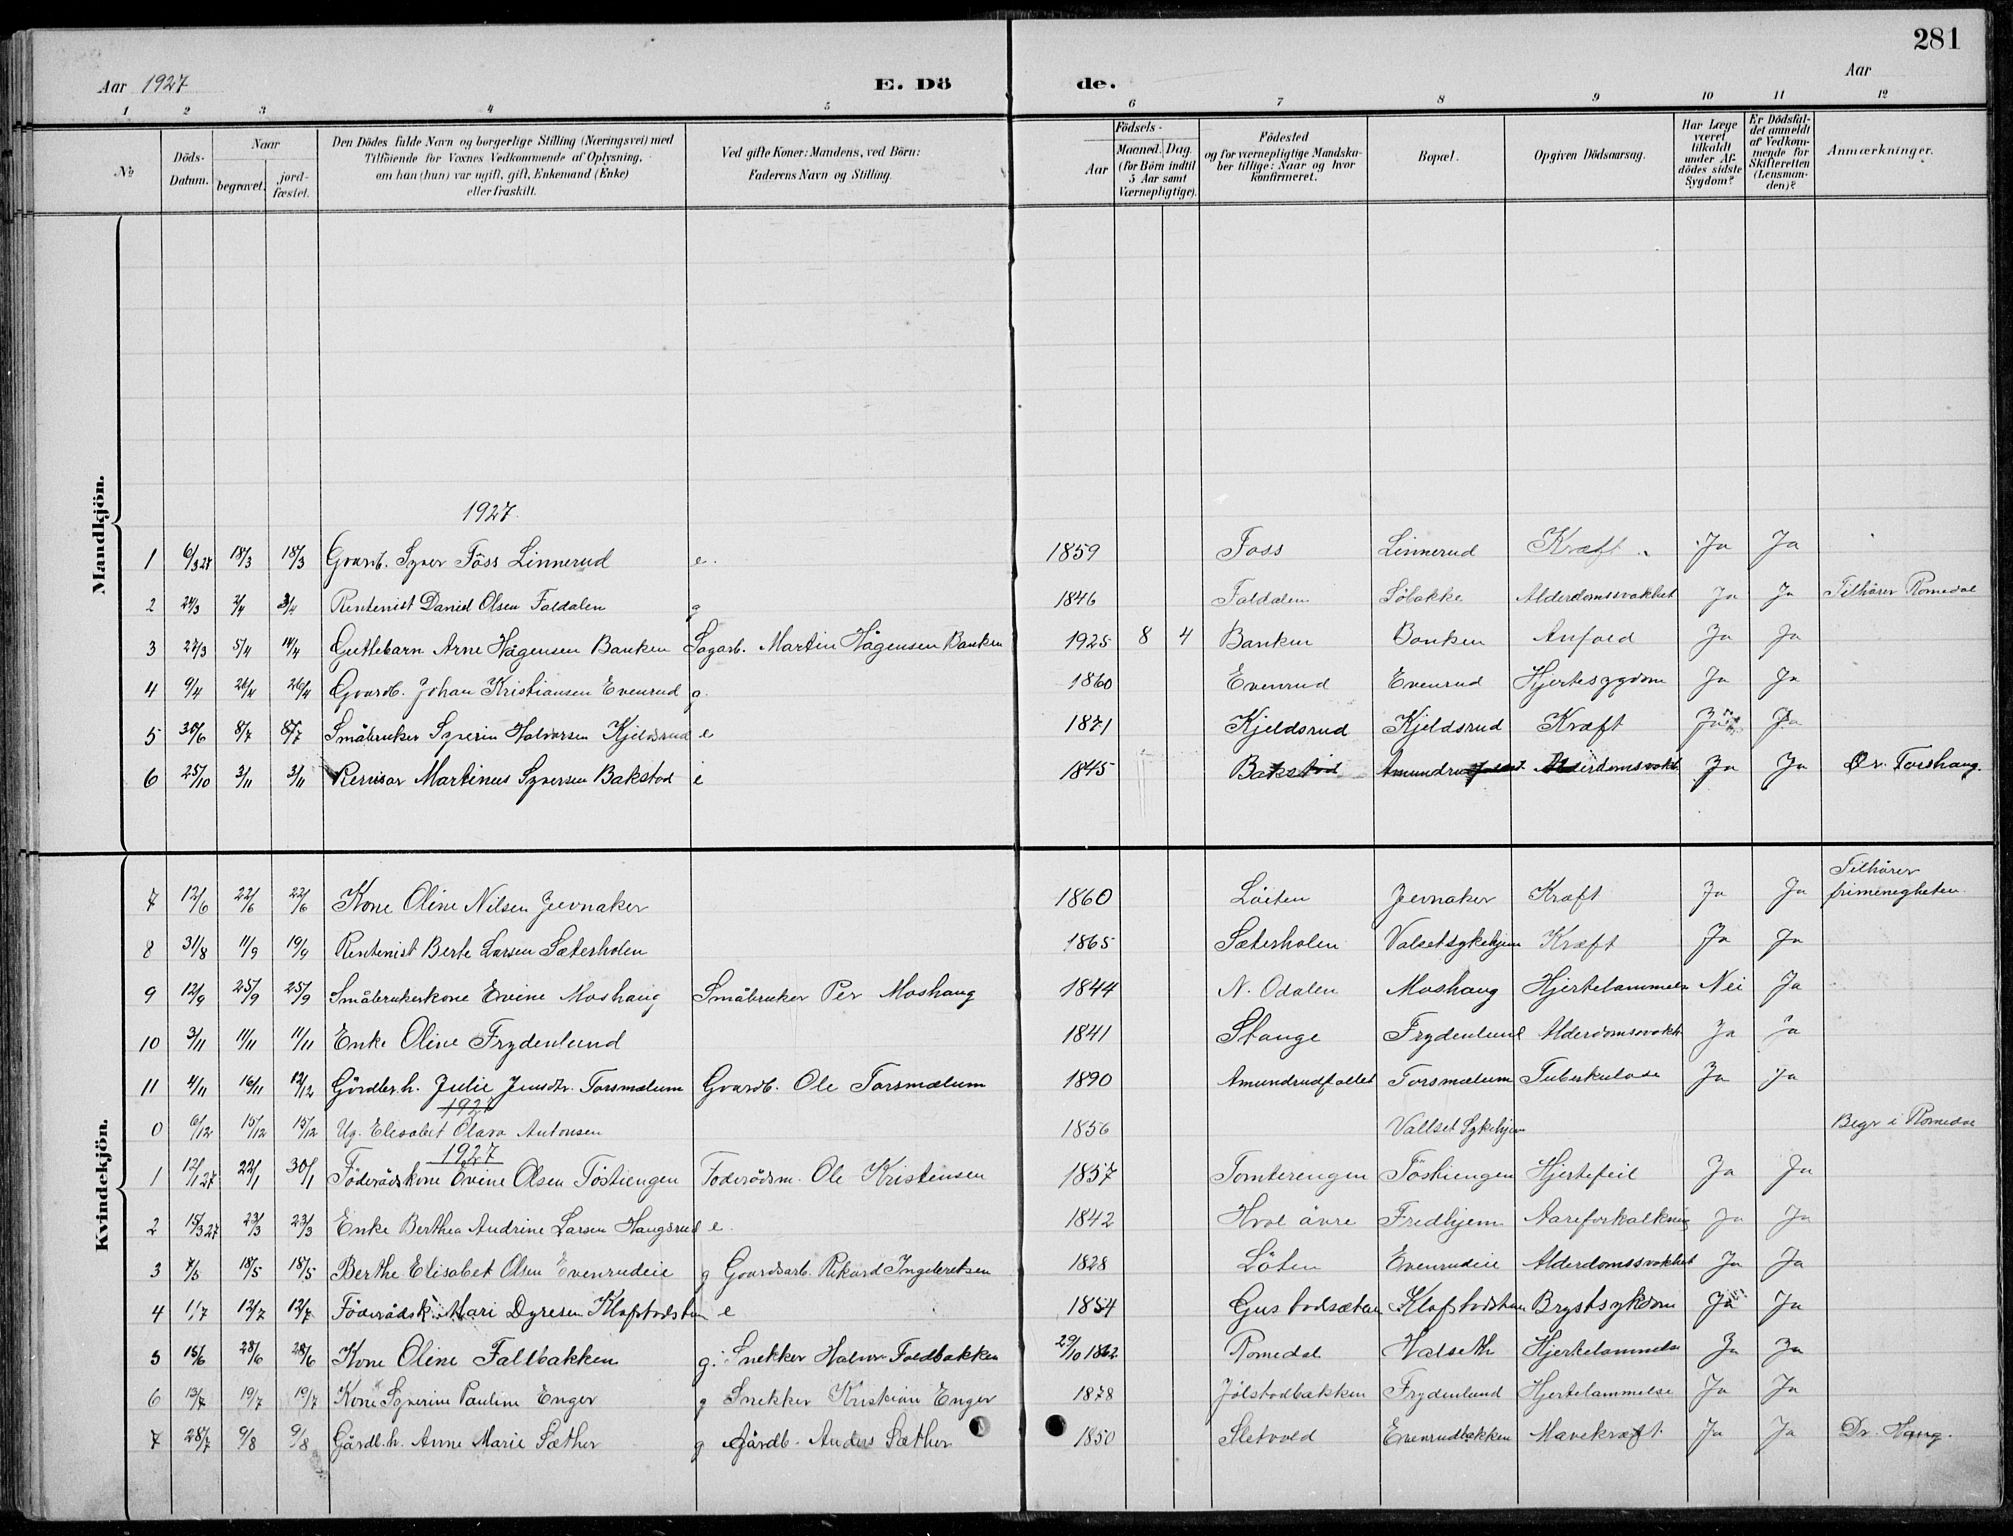 281
Aar 1927
E. Dö de.
Aar
1 2 3 4 5 6 7 8 9 10 11 12
№
Döds-Datum.
Naar
begravet.
jord-fæstet.
Den Dödes fulde Navn og borgerlige Stilling (Næringsvei) med
Tilföiende for Voxnes Vedkommende af Oplysning,
om han (hun) var ugift, gift, Enkemand (Enke)
eller fraskilt.
Ved gifte Koner: Mandens, ved Börn:
Faderens Navn og Stilling.
Födsels-
Aar
Maaned. Dag.
(for Börn indtil
5 Aar samt
Værnepligtige).
Födested
og for værnepligtige Mandska-
ber tillige: Naar og hvor
konfirmeret.
Bopæl.
Opgiven Dödsaarsag.
Har Læge
været
tilkaldt
under Af-
dödes sidste
Sygdom?
Er Dödsfal-
det anmeldt
af Vedkom-
mende for
Skifteretten
(Lensman-
den)?
Anmærkninger.
Mandkjön.
1927.
1 6/3 27 18/3 18/3 Gvarb. Syver Föss Linnerud e. 1859 Foss Linnerud Kræft Ja Ja
2 24/3 2/4 3/4 Rentenist Daniel Olsen Faldalen g 1846 Faldalen Sölakke Alderdomssvakhet Ja Ja Tilhører Romedal
3 27/3 5/4 14/4 Guttebarn Arne Hågensen Banken Sagarb. Martin Hågensen Banken 1925 8 4 Banken Banken Anfald Ja Ja
4 9/4 26/4 26/4 Gvardb. Johan Kristiansen Evenrud g. 1860 Evenrud Evenrud Hjertesygdom Ja Ja
5 30/6 8/7 8/7 Småbruker Syverin Halvorsen Kjeldsrud e 1871 Kjeldsrud Kjeldsrud Kræft Ja Ja
6 25/10 3/11 3/11 Revisor Martinus Syversen Bakstad e 1845 Bakstad Alderdomsvakh Ja Ja
Kvindekjön.
7 12/6 22/6 22/6 Kone Oline Nilsen Jevnaker 1860 Löiten Jevnaker Kræft Ja Ja Tilhører
frimenigheten
8 31/8 11/9 19/9 Rentenist Berte Larsen Sæterholen 1865 Sæterholen Valsetsykehjem Kræft Ja Ja
9 12/9 25/9 25/9 Småbrukerkone Evine Moshaug Småbruker Per Moshaug 1844 N. Odalen Moshaug Hjertelammelse Nei Ja
10 3/11 11/11 11/11 Enke Oline Frydenlund 1841 Stange Frydenlund Alderdomsvakh Ja Ja
11 4/11 16/11 12/12 Gårdbr.h. Julie Jensdtr. Torsmælum Gvardb. Ole Torsmælum 1890 Amundrudfallet Torsmælum Tuberkulose Ja Ja
1927
0 6/12 15/12 15/12 Ug. Elisabet Olava Antonsen 1856 Vallset Sykehjem Begr i Romedal
1927
1 12/1 27 22/1 30/1 Föderådskone Evine Olsen Töstiengen Foderådsm. Ole Kristensen 1837 Tomterengen Töstiengen Hjertefeil Ja Ja
2 15/3 27 23/3 23/3 Enke Berthea Andrine Larsen Haugsrud e. 1842 Hval övre Fredhjem Aareforkalkning Ja Ja
3 7/5 18/5 18/5 Berthe Elisabet Olsen Evenrudeie g Gvardsarb. Rikard Ingebretsen 1828 Löten Evenrudeie Alderdomssvakhet Ja Ja
4 1/7 12/7 12/7 Föderådsk. Mari Dyresen Klafstadstuen e 1854 Klafstadstuen Brystsykdom Ja Ja
5 15/6 28/6 28/6 Kone Oline Fallbakken g. Snekker Halvor Faldbakken 29/10 1862 Romedal Halseth Hjertelammelse Ja Ja
6 13/7 19/7 19/7 Kone Syverine Pauline Enger g Snekker Kristian Enger 1878 Jölstadbakken Frydenlund Hjertelammelse Ja Ja
7 28/7 9/8 9/8 Gårdb.h. Anne Marie Sæther g Gårdb. Anders Sæther 1850 Sletvold Evenrudbakken Mavekræft. Ja Ja Dr. Haug.